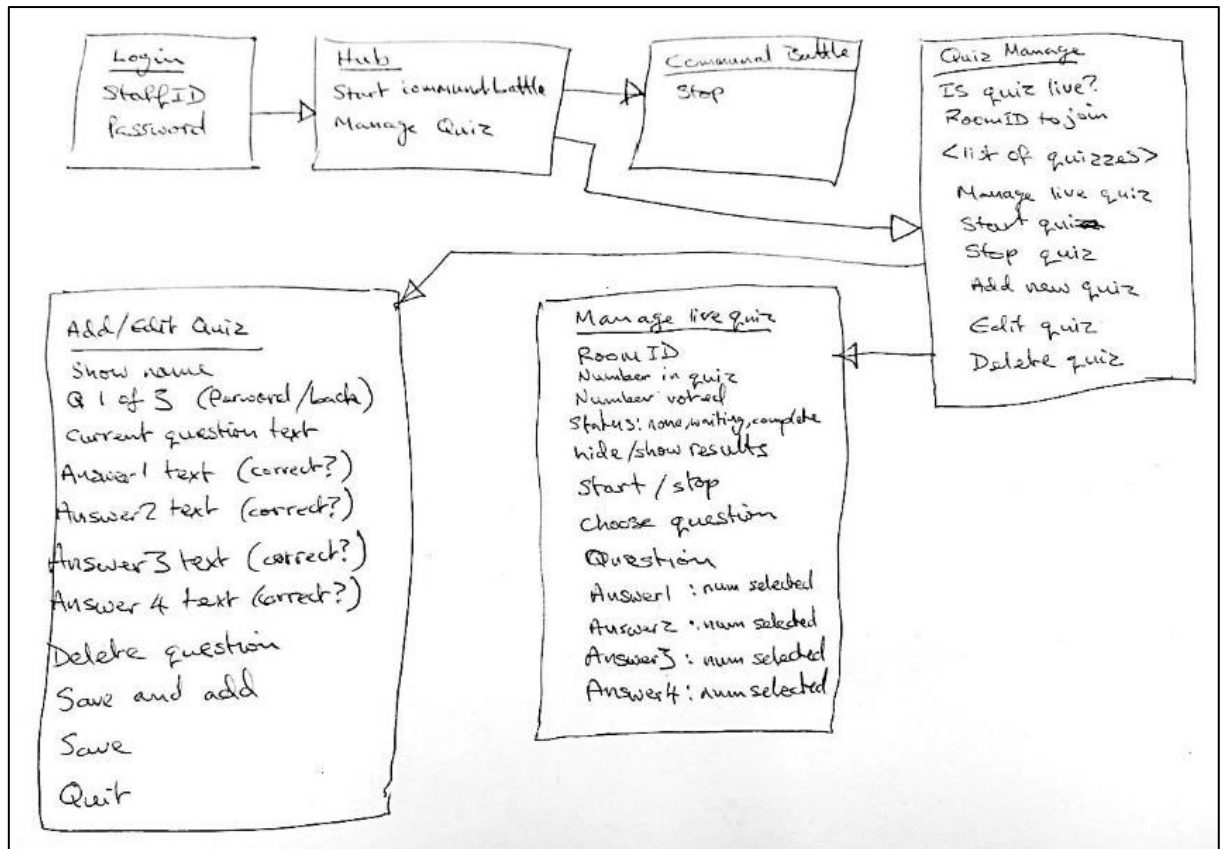 Login
StaffID
Password
Hub
Start communal battle
Manage Quiz
Communal Battle
Stop
Quiz Manage
Is quiz live?
RoomID to join
<list of quizzes>
Manage live quiz
Start quiz
Stop quiz
Add new quiz
Edit quiz
Delete quiz
Add/Edit Quiz
Show name
Q 1 of 3 (Forword/back)
Current question text
Answer1 text (correct?)
Answer2 text (correct?)
Answer3 text (correct?)
Answer 4 text (correct?)
Delete question
Save and add
Save
Quit
Manage live quiz
Room ID
Number in quiz
Number voted
Status: none, waiting, complete
hide/show results
Start / stop
Choose question
Question
Answer1 : num selected
Answer2 : num selected
Answer3 : num selected
Answer4 : num selected